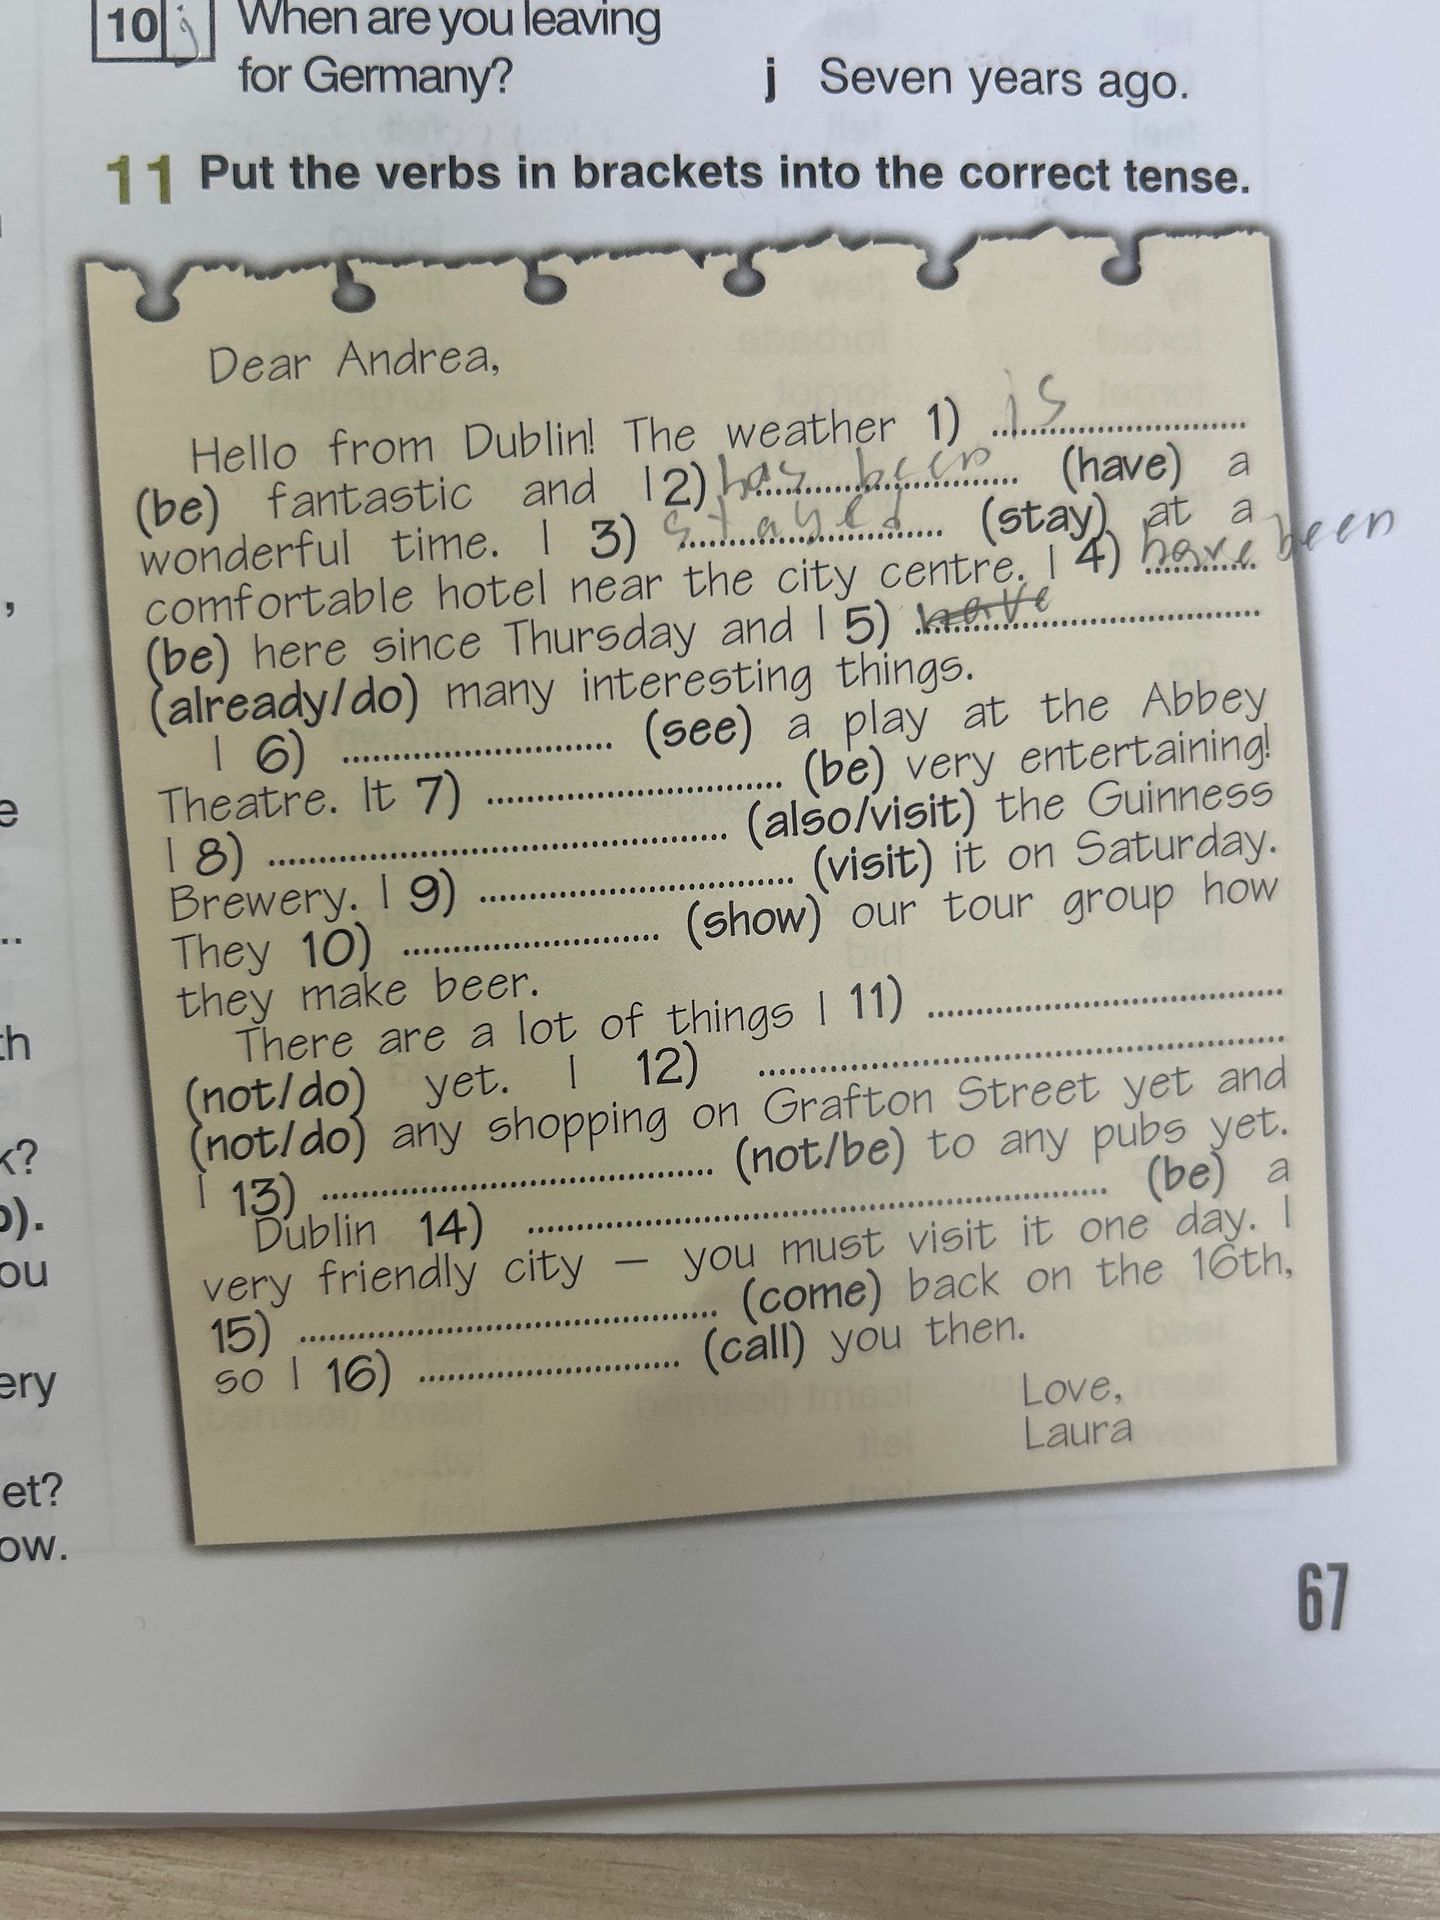 10 j When are you leaving
for Germany?
j Seven years ago.
11 Put the verbs in brackets into the correct tense.
Dear Andrea,
Hello from Dublin! The weather 1) is
(be) fantastic and I 2) has been (have) a
wonderful time. I 3) stayed (stay) at a
comfortable hotel near the city centre. I 4) have been
(be) here since Thursday and I 5) have
(already/do) many interesting things.
I 6) (see) a play at the Abbey
Theatre. It 7) (be) very entertaining!
I 8) (also/visit) the Guinness
Brewery. I 9) (visit) it on Saturday.
They 10) (show) our tour group how
they make beer.
There are a lot of things I 11)
(not/do) yet. I 12)
(not/do) any shopping on Grafton Street yet and
I 13) (not/be) to any pubs yet.
Dublin 14) (be) a
very friendly city – you must visit it one day. I
15) (come) back on the 16th,
so I 16) (call) you then.
Love,
Laura
67